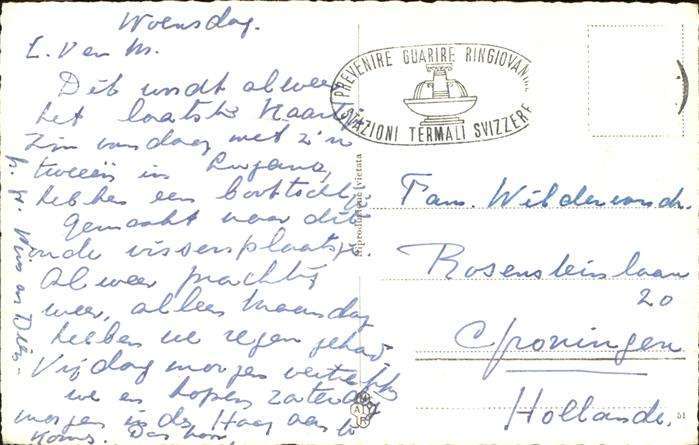 Woensdag.
L. V en M.
Dit wordt alweer
het laatste kaartje
Zijn vandaag met z'n
tweeën in Lugano,
hebben een boottocht
gemaakt naar dit
oude vissersplaatsje.
Alweer prachtig
weer, alleen Maandag
hebben we regen gehad
Vrijdag morgen vertrekken
we en hopen zaterdag
morgen in den Haag aan te
Koms. Das
PREVENIRE GUARIRE RINGIOVANIRE
STAZIONI TERMALI SVIZZERE
Riproduzione vietata
Fam.
Rosensteinlaan
20
Groningen
Hollande.
51